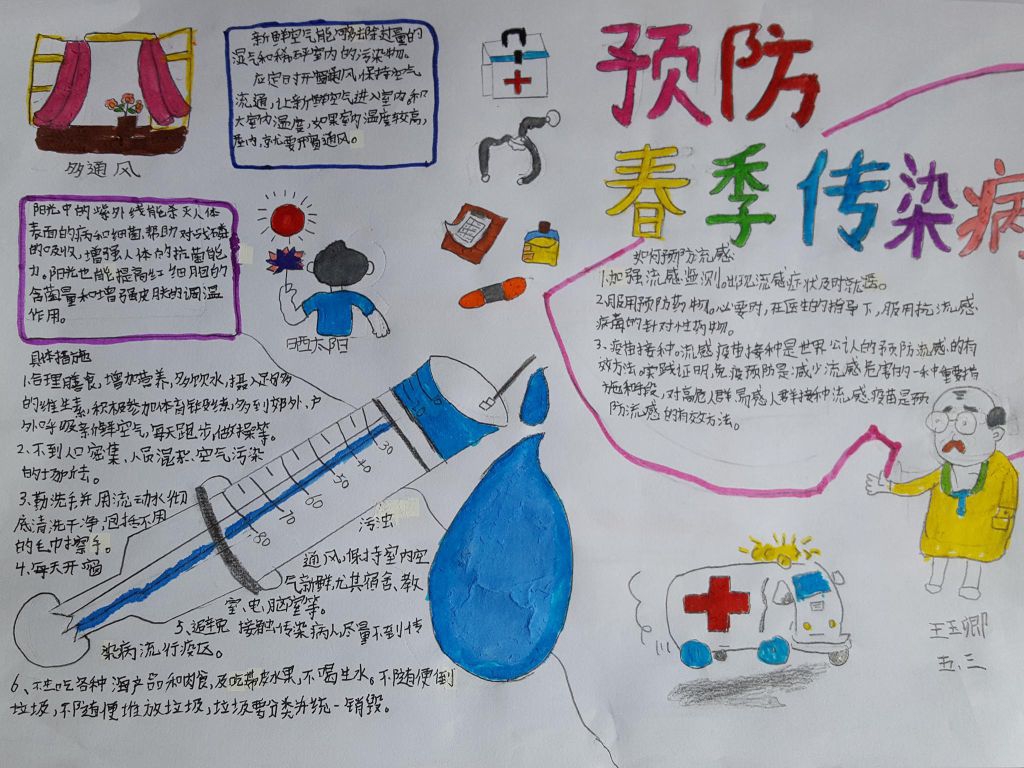 预防
春季传染病
新鲜空气能够去除过量的
湿气和稀释室内的污染物。
应定时开窗通风,保持空气
流通,让新鲜空气进入室内。和
大室内温度,如果室内温度较高,
屋内,就尤要开窗通风。
多通风
阳光中的紫外线能杀灭人体
表面的病和细菌,帮助对残磷
的吸收,增强人体的抗菌能
力。阳光也能提高红细胞的
含菌量和增强皮肤的调温
作用。
晒太阳
具体措施
1.合理膳食,增加营养,多饮水,摄入足够
的维生素,积极参加体育锻炼,多到郊外、户
外呼吸新鲜空气,每天跑步,做操等。
2、不到人口密集、人员混积、空气污染
的场所去。
3、勤洗手并用流动水彻
底清洗干净,包括不用
污浊
的毛巾擦手。
4、每天开窗
通风,保持室内空
气新鲜,尤其宿舍、教
室、电脑室等。
5、避免接触传染病人尽量不到传
染病流行疫区。
6、不生吃各种海产品和肉食,及吃带皮水果,不喝生水。不随便倒
垃圾,不随便堆放垃圾,垃圾要分类并统一销毁。
如何预防流感
1.加强流感监测。出现流感症状及时就医。
2.服用预防药物。必要时,在医生的指导下,服用抗流感
病菌的针对性药物。
3、疫苗接种。流感疫苗接种是世界公认的预防流感的有
效方法。实践证明,免疫预防是减少流感危害的一种重要措
施和手段,对高危人群易感人群接种流感疫苗是预
防流感的有效方法。
王玉卿
五、三